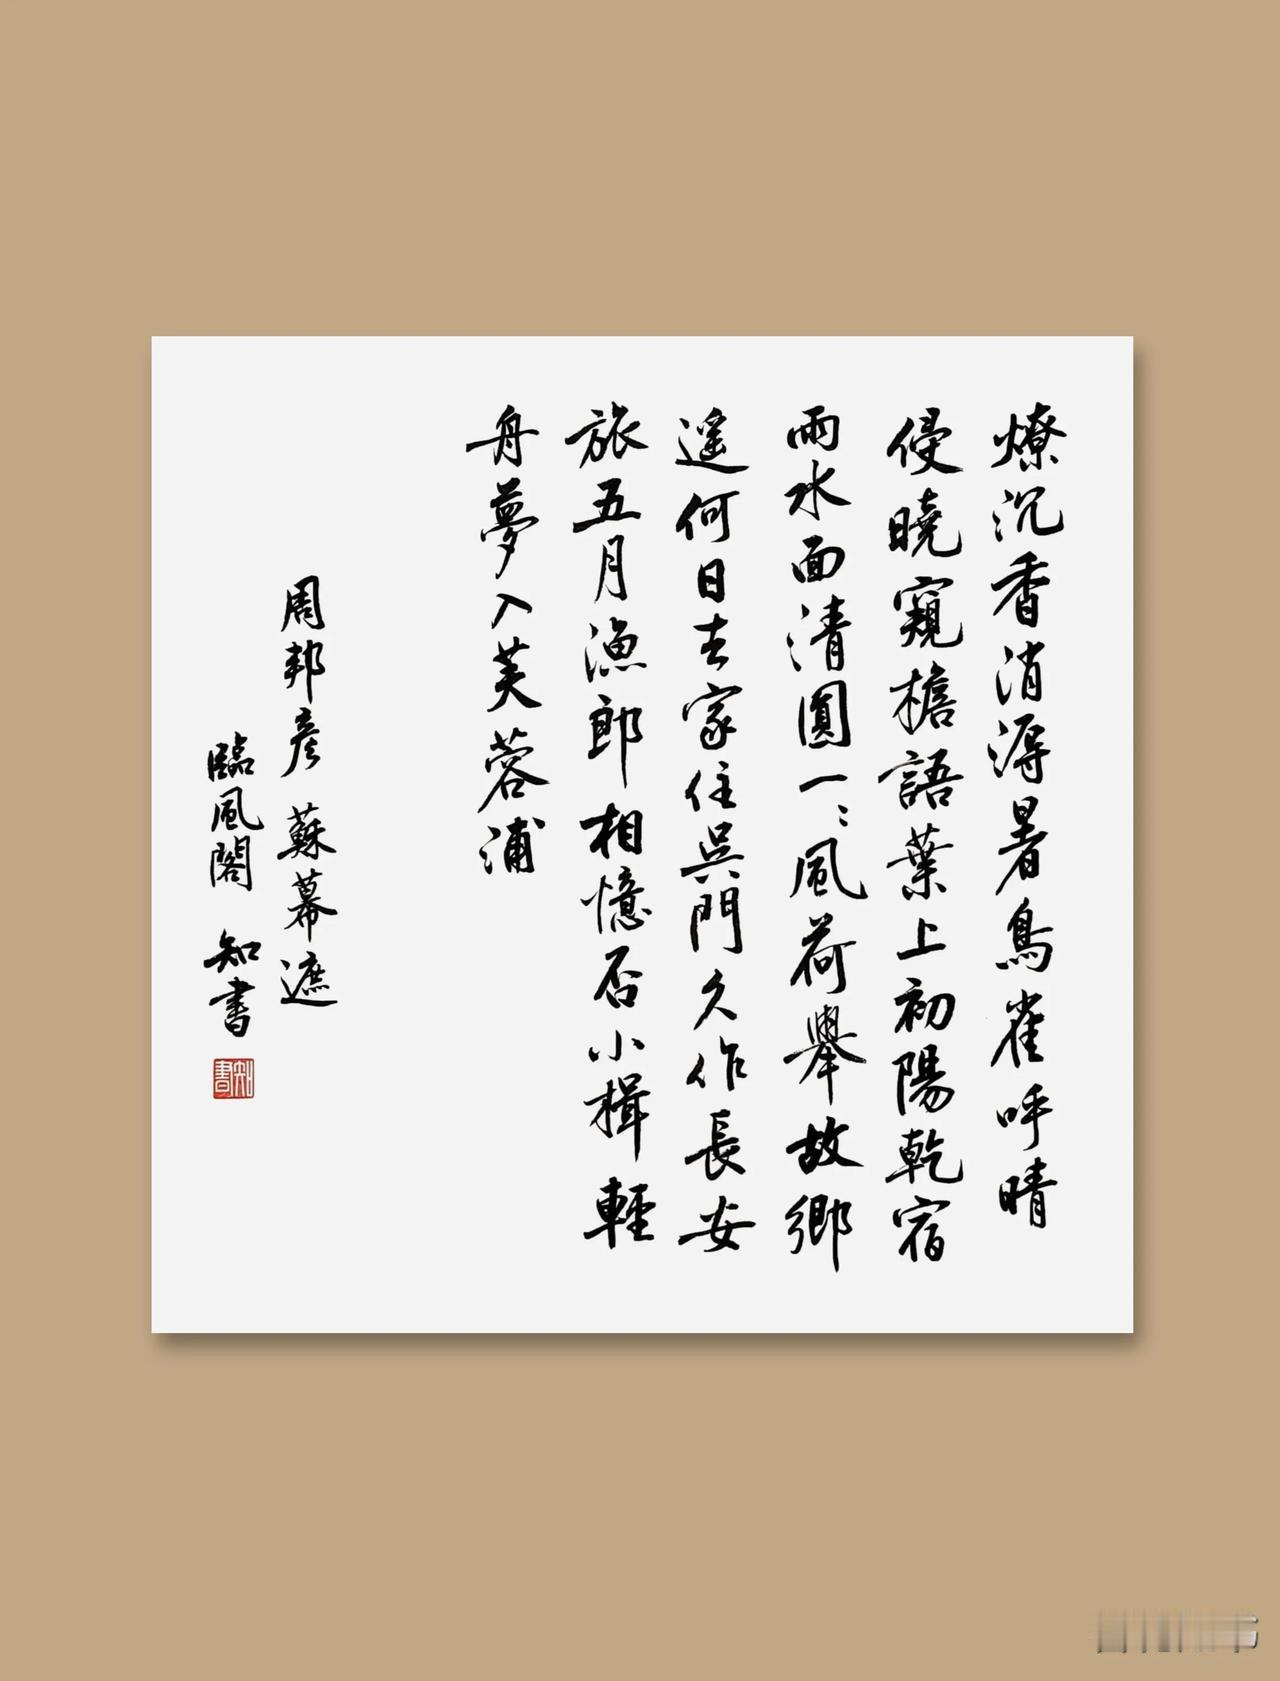 燎沉香消溽暑鳥雀呼晴
侵曉窺檐語葉上初陽乾宿
雨水面清圓一〻風荷舉故鄉
遥何日去家住吳門久作長安
旅五月漁郎相憶否小楫輕
舟夢入芙蓉浦
周邦彦 蘇幕遮
臨風閣 知書
知書